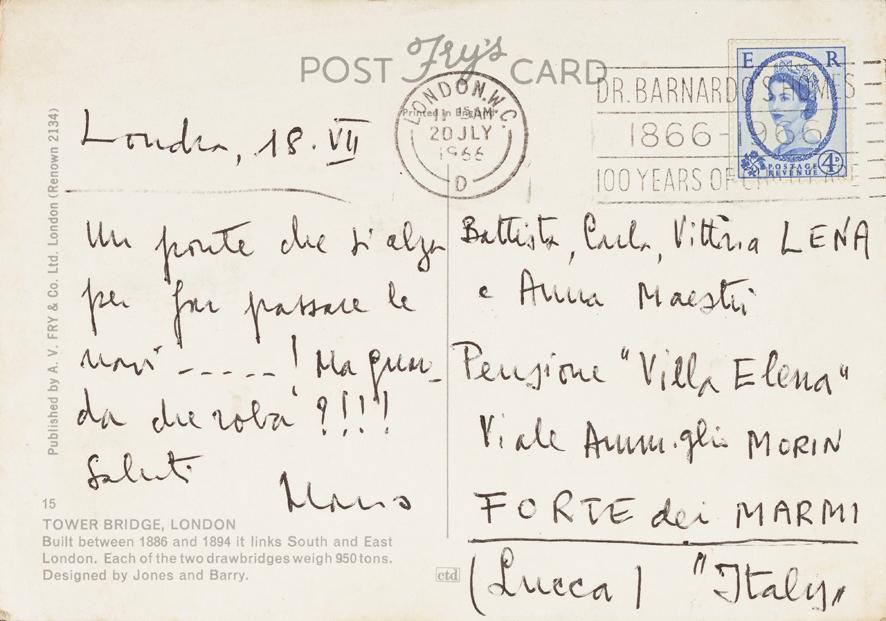 POST Fry's CARD
Printed in England
LONDON.W.C.
11 15AM
20 JLY
1966
D
DR. BARNARDO'S HOMES
1866-1966
100 YEARS OF
E R
POSTAGE
REVENUE
4D
Londra, 18. VII
Un ponte che si alza
per far passare le
navi -----! Ma guar-
da che roba ?!!!
Saluti
Mario
Battista, Carla, Vittoria LENA
e Anna Maestri
Pensione "Villa Elena"
Viale Ammiraglio MORIN
FORTE dei MARMI
(Lucca) "Italy"
Published by A. V. FRY & Co. Ltd. London (Renown 2134)
15
TOWER BRIDGE, LONDON
Built between 1886 and 1894 it links South and East
London. Each of the two drawbridges weigh 950 tons.
Designed by Jones and Barry.
ctd